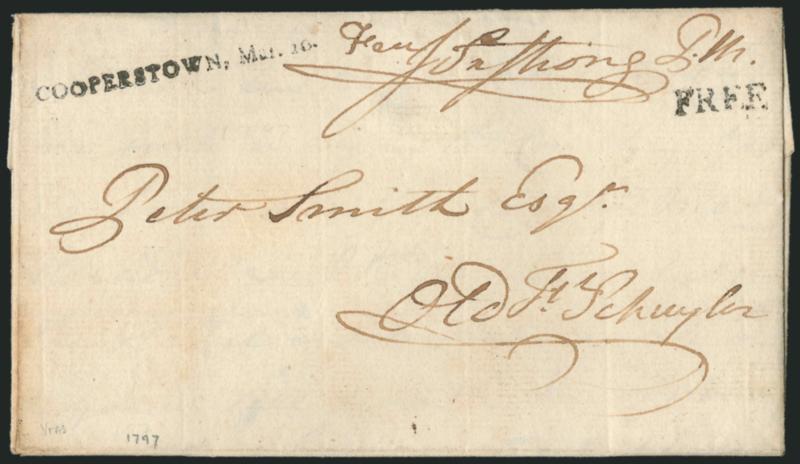 COOPERSTOWN, Mar. 16.
Free J Armstrong P.M.
FREE
Peter Smith Esqr.
Old Ft. Schuyler
1797